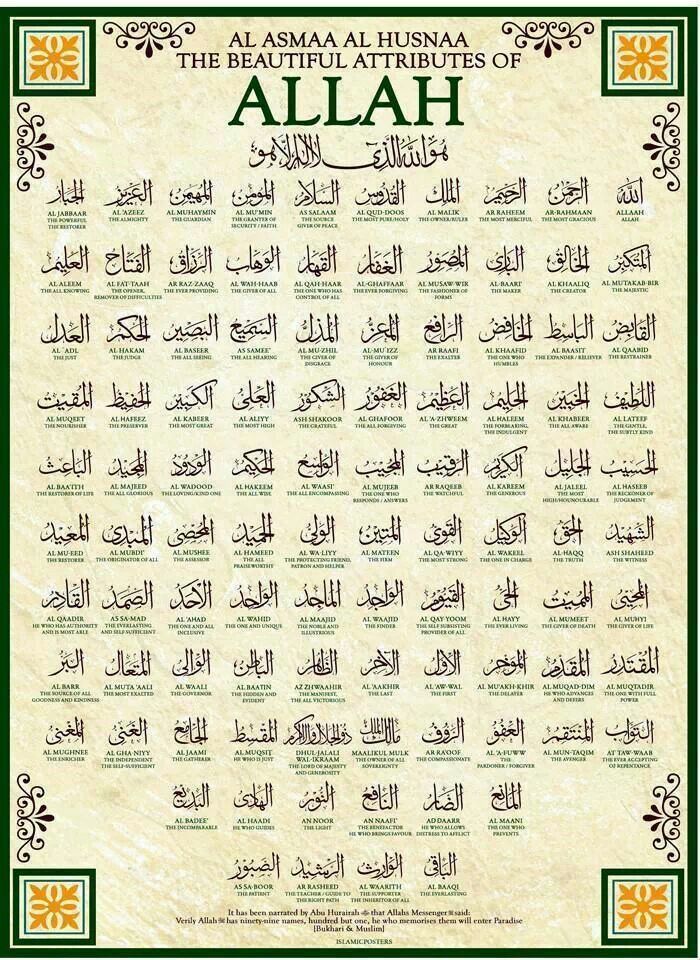 AL ASMAA AL HUSNAA
THE BEAUTIFUL ATTRIBUTES OF
ALLAH
هو الله الذي لا إله إلا هو
الله
ALLAAH
ALLAH
الرحمن
AR-RAHMAAN
THE MOST GRACIOUS
الرحيم
AR RAHEEM
THE MOST MERCIFUL
الملك
AL MALIK
THE OWNER/RULER
القدوس
AL QUD-DOOS
THE MOST PURE/HOLY
السلام
AS SALAAM
THE SOURCE
GIVER OF PEACE
المؤمن
AL MU'MIN
THE GRANTER OF
SECURITY / FAITH
المهيمن
AL MUHAYMIN
THE GUARDIAN
العزيز
AL 'AZEEZ
THE ALMIGHTY
الجبار
AL JABBAAR
THE POWERFUL
THE RESTORER
المتكبر
AL MUTAKAB-BIR
THE MAJESTIC
الخالق
AL KHAALIQ
THE CREATOR
البارئ
AL-BAARI'
THE MAKER
المصور
AL MUSAW-WIR
THE FASHIONER OF
FORMS
الغفار
AL-GHAFFAAR
THE EVER FORGIVING
القهار
AL QAH-HAAR
THE ONE WHO HAS
CONTROL OF ALL
الوهاب
AL WAH-HAAB
THE GIVER OF ALL
الرزاق
AR RAZ-ZAAQ
THE EVER PROVIDING
الفتاح
AL FAT-TAAH
THE OPENER,
REMOVER OF DIFFICULTIES
العليم
AL ALEEM
THE ALL KNOWING
القابض
AL QAABID
THE RESTRAINER
الباسط
AL BAASIT
THE EXPANDER / RELIEVER
الخافض
AL KHAAFID
THE ONE WHO
HUMBLES
الرافع
AR RAAFI
THE EXALTER
المعز
AL-MU'IZZ
THE GIVER OF
HONOUR
المذل
AL MU-ZHIL
THE GIVER OF
DISGRACE
السميع
AS SAMEE'
THE ALL HEARING
البصير
AL BASEER
THE ALL SEEING
الحكم
AL HAKAM
THE JUDGE
العدل
AL 'ADL
THE JUST
اللطيف
AL LATEEF
THE GENTLE,
THE SUBTLY KIND
الخبير
AL KHABEER
THE ALL AWARE
الحليم
AL HALEEM
THE FORBEARING,
THE INDULGENT
العظيم
AL 'A-ZHWEEM
THE GREAT
الغفور
AL GHAFOOR
THE ALL FORGIVING
الشكور
ASH SHAKOOR
THE GRATEFUL
العلي
AL ALIYY
THE MOST HIGH
الكبير
AL KABEER
THE MOST GREAT
الحفيظ
AL HAFEEZ
THE PRESERVER
المقيت
AL MUQEET
THE NOURISHER
الحسيب
AL HASEEB
THE RECKONER OF
JUDGEMENT
الجليل
AL JALEEL
THE MOST
HIGH/HOUNOURABLE
الكريم
AL KAREEM
THE GENEROUS
الرقيب
AR RAQEEB
THE WATCHFUL
المجيب
AL MUJEEB
THE ONE WHO
RESPONDS / ANSWERS
الواسع
AL WAASI'
THE ALL ENCOMPASSING
الحكيم
AL HAKEEM
THE ALL WISE
الودود
AL WADOOD
THE LOVING/KIND ONE
المجيد
AL MAJEED
THE ALL GLORIOUS
الباعث
AL BAA'ITH
THE RESTORER OF LIFE
الشهيد
ASH SHAHEED
THE WITNESS
الحق
AL-HAQQ
THE TRUTH
الوكيل
AL WAKEEL
THE ONE IN CHARGE
القوى
AL QA-WIYY
THE MOST STRONG
المتين
AL MATEEN
THE FIRM
الولى
AL WA-LIYY
THE PROTECTING FRIEND,
PATRON AND HELPER
الحميد
AL HAMEED
THE ALL
PRAISEWORTHY
المحصى
AL MUSHEE
THE ASSESSOR
المبدئ
AL MUBDI'
THE ORIGINATOR OF ALL
المعيد
AL MU-EED
THE RESTORER
المحيى
AL MUHYI
THE GIVER OF LIFE
المميت
AL MUMEET
THE GIVER OF DEATH
الحى
AL HAYY
THE EVER LIVING
القيوم
AL QAY YOOM
THE SELF SUBSISTING
PROVIDER OF ALL
الواجد
AL WAAJID
THE FINDER
الماجد
AL MAAJID
THE NOBLE AND
ILLUSTRIOUS
الواحد
AL WAHID
THE ONE AND UNIQUE
الأحد
AL 'AHAD
THE ONE AND ALL
INCLUSIVE
الصمد
AS SA-MAD
THE EVERLASTING
AND SELF SUFFICIENT
القادر
AL QAADIR
HE WHO HAS AUTHORITY
AND IS MOST ABLE
المقتدر
AL MUQTADIR
THE ONE WITH FULL
POWER
المقدم
AL MUQAD-DIM
HE WHO ADVANCES
AND DEFERS
المؤخر
AL MU'AKH-KHIR
THE DELAYER
الأول
AL 'AW-WAL
THE FIRST
الآخر
AL 'AAKHIR
THE LAST
الظاهر
AZ ZHWAAHIR
THE MANIFEST,
THE ALL VICTORIOUS
الباطن
AL BAATIN
THE HIDDEN AND
EVIDENT
الوالى
AL WAALI
THE GOVERNOR
المتعال
AL MUTA 'AALI
THE MOST EXALTED
البر
AL BARR
THE SOURCE OF ALL
GOODNESS AND KINDNESS
التواب
AT TAW-WAAB
THE EVER ACCEPTING
OF REPENTANCE
المنتقم
AL MUN-TAQIM
THE AVENGER
العفو
AL 'A-FUWW
THE
PARDONER / FORGIVER
الرؤوف
AR RA'OOF
THE COMPASSIONATE
مالك الملك
MAALIKUL MULK
THE OWNER OF ALL
SOVEREIGNTY
ذو الجلال والإكرام
DHUL-JALALI
WAL-IKRAAM
THE LORD OF MAJESTY
AND GENEROSITY
المقسط
AL MUQSIT
HE WHO IS JUST
الجامع
AL JAAMI
THE GATHERER
الغنى
AL GHA-NIYY
THE INDEPENDENT
THE SELF-SUFFICIENT
المغنى
AL MUGHNEE
THE ENRICHER
المانع
AL MAANI
THE ONE WHO
PREVENTS
الضار
AD DAARR
HE WHO ALLOWS
DISTRESS TO AFFLICT
النافع
AN NAAFI'
THE BENEFACTOR
HE WHO BRINGS FAVOUR
النور
AN NOOR
THE LIGHT
الهادي
AL HAADI
HE WHO GUIDES
البديع
AL BADEE'
THE INCOMPARABLE
الباقى
AL BAAQI
THE EVERLASTING
الوارث
AL WAARITH
THE SUPPORTER
THE INHERITOR OF ALL
الرشيد
AR RASHEED
THE TEACHER / GUIDE TO
THE RIGHT PATH
الصبور
AS SA-BOOR
THE PATIENT
It has been narrated by Abu Hurairah that Allahs Messenger ﷺ said:
Verily Allah has ninety-nine names, hundred but one, he who memorises them will enter Paradise
[Bukhari & Muslim]
ISLAMICPOSTERS